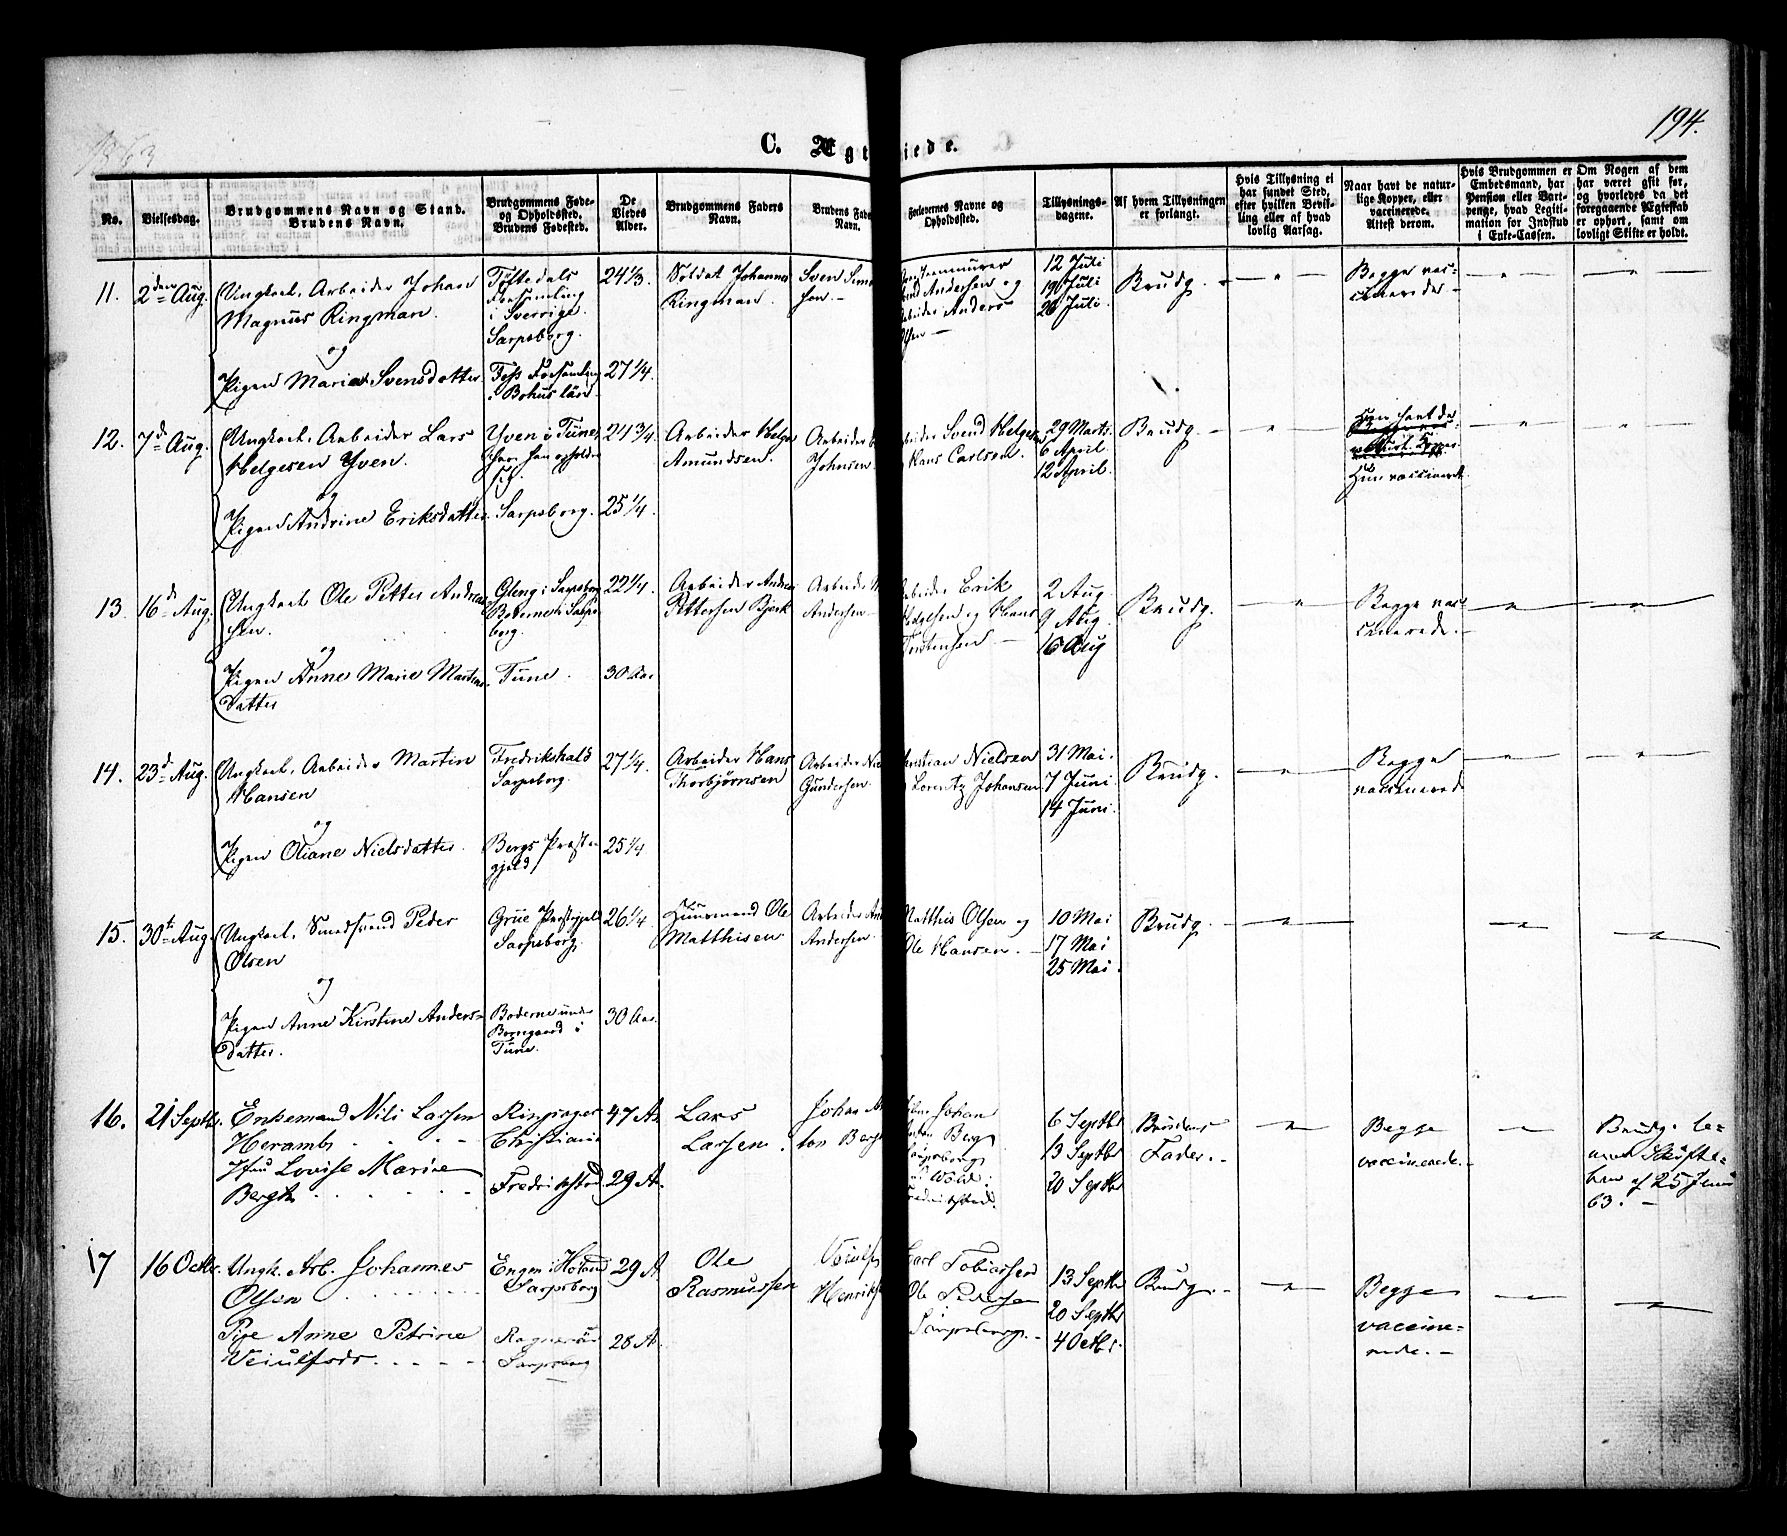 1863
194.
C. Ægteviede.
No.
Vielsesdag.
Brudgommens Navn og Stand.
Brudens Navn.
Brudgommens Føde-
og Opholdssted.
Brudens Fødested.
De
Viedes
Alder.
Brudgommens Faders
Navn.
Brudens Fad
Navn.
Forlovernes Navne og
Opholdssted.
Tillysnings-
dagene.
Af hvem Tillysningen
er forlangt.
Hvis Tillysning ei
har fundet Sted,
efter hvilken Bevil-
ling eller af hvad
lovlig Aarsag.
Naar havt de natur-
lige Kopper, eller
vaccinerede.
Attest derom.
Hvis Brudgommen er
Embedsmand, har
Pension eller Vart-
penge, hvad Legiti-
mation for Indskud
i Enke-Cassen.
Om Nogen af dem
har været gift før,
og hvorledes da det
foregaaende Ægteskab
er ophørt, samt om
lovligt Skifte er holdt.
11.
2den Aug.
Ungkarl, Arbeider Johan
Magnus Ringman.
og
Pigen Maria Svensdatter
Töftedals
Forsamling
i Sverrige.
Sarpsborg.
Foss Forsamling
i Bohus län
24 1/3
27 1/4.
Soldat Johannes
Ringman.
Sven Simo
sen.
Andersen og
Anders
12 Juli
19 Juli
26 Juli.
Brudg.
Begge vac-
cinerede.
12.
7d Aug.
Ungkarl, Arbeider Lars
Helgesen Yven.
og
Pigen Andrine Eriksdatter.
Yven i Tune,
hvor han opholder
sig.
Sarpsborg.
24 3/4
25 1/4.
Arbeider Helge
Amundsen.
Arbeider
Johnsen
Svend Helgesen
Hans Carlsen.
29 Marts
6 April
12 April.
Brudg.
Hun vaccineret.
13.
16d Aug.
Ungkarl Ole Petter Andrea-
sen.
og
Pigen Anne Marie Martens-
datter
Gleng i Sarpsborg
Sarps-
borg.
Tune.
22 1/4
30 Aar
Arbeider Andreas
Pettersen Bjerk
Arbeider
Andersen
Erik
Helgesen og Hans
2 Aug
9 Aug
16 Aug
Brudg.
Begge vac-
cinerede.
14.
23d Aug.
Ungkarl, Arbeider Martin
Hansen
og
Pigen Oliane Nielsdatter.
Fredrikshald
Sarpsborg.
Bergs Præste-
gjeld
27 1/4.
25 1/4
Arbeider Hans
Thorbjørnsen
Arbeider Nie
Gundersen
Nielsen
Lorentz Johansen
31 Mai
7 Juni
14 Juni.
Brudg.
Begge
vaccinerede
15.
30t Aug.
Ungkarl, Smedsvend Peder
Olsen
og
Pigen Anne Kirstine Anders-
datter.
Grue Præstegjeld
Sarpsborg.
Boderne under
Borregaard i
Tune.
26 1/4
30 Aar.
Huusmand Ole
Matthisen
Arbeider And
Andersen
Matthis Olsen og
Ole Hansen.
10 Mai
17 Mai
25 Mai.
Brudg.
16.
21 Septbr.
Enkemand Nils Larsen
Heramb
Jfru Lovise Marine
Bergh
Ringsager
Christiania
Fredrikstad
47 A.
29 A.
Lars
Larsen.
Johan An
ton Bergh
Johan
Anton Berg
Sarpsborg
Wold
Fredrikstad.
6 Septbr
13 Septbr
20 Septbr
Brudens
Fader.
Begge
vaccinerede.
Brudg. le-
Skifte-
brev af 25 Juni
63.
17
16 Octbr.
Ungk. Arb. Johannes
Olsen
Pige Anne Petrine
Veiulfsdr.
Engen i Høland
Sarpsborg
Sarpsborg
29 A.
28 A.
Ole
Rasmussen
Veiulf
Henriks
Carl Tobiassen
Ole Pedersen
Sarpsborg.
13 Septbr
20 Septbr
4 Octbr.
Brudg.
Begge
vaccine-
rede.